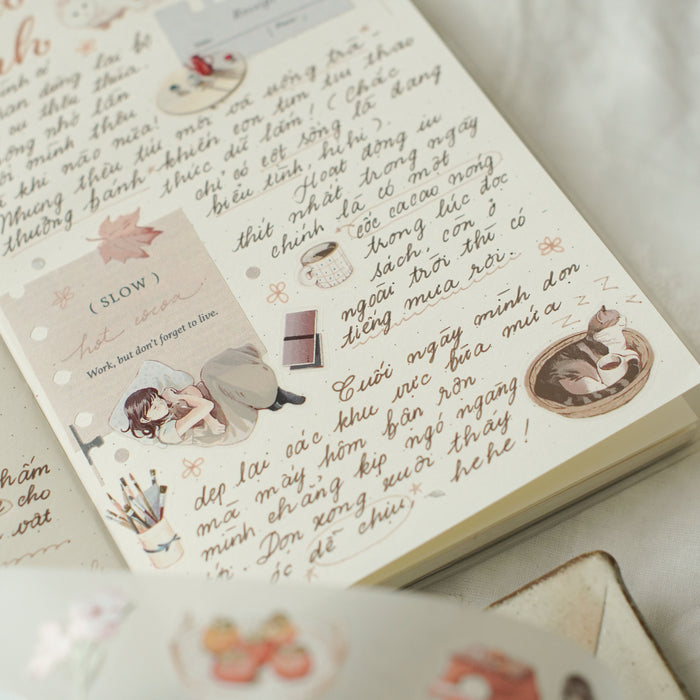 nh
Receipt
mình có
đứng lại bộ
thêu thùa.
nhỏ lần
mình thêu
khi nào nữa!
Nhưng thêu túi mới và uống trà
thưởng bánh khiến con tim túi thao
thức dữ lắm! (Chắc
chỉ có cột sống là đang
biểu tình, hihi).
Hoạt động iu
thít nhất trong ngày
chính là có một
cốc cacao nóng
trong lúc đọc
sách, còn ở
ngoài trời thì có
tiếng mưa rơi.
(SLOW)
hot cocoa
Work, but don't forget to live.
Cuối ngày mình dọn
dẹp lại các khu vực bừa mứa
mà mấy hôm bận rộn
mình chẳng kịp ngó ngàng
tới. Dọn xong xuôi thấy
óc dễ chịu, hehe!
z z z z z
cho
vật